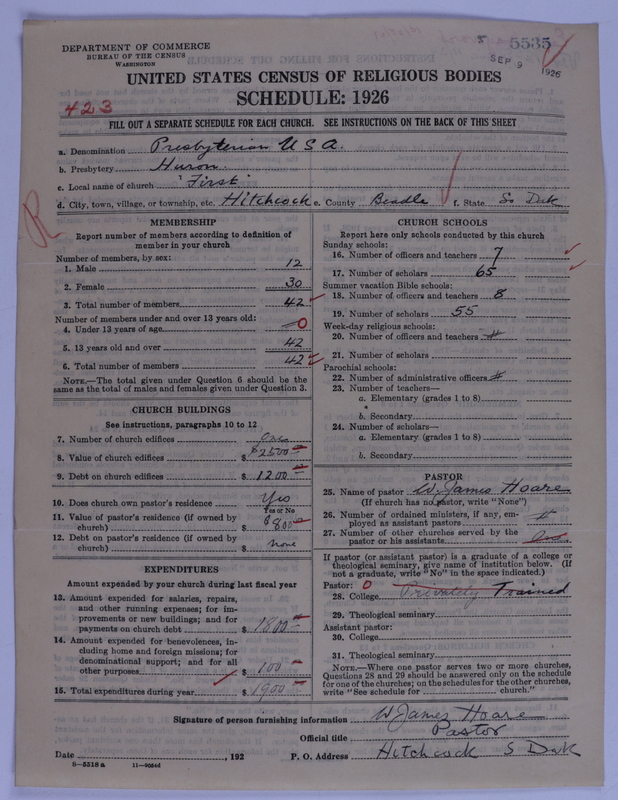 5535
SEP 9 1926
DEPARTMENT OF COMMERCE
BUREAU OF THE CENSUS
WASHINGTON
UNITED STATES CENSUS OF RELIGIOUS BODIES
SCHEDULE: 1926
423
FILL OUT A SEPARATE SCHEDULE FOR EACH CHURCH. SEE INSTRUCTIONS ON THE BACK OF THIS SHEET
a. Denomination Presbyterian U S A.
b. Presbytery Huron.
c. Local name of church "First"
d. City, town, village, or township, etc. Hitchcock e. County Beadle f. State So Dak
R
MEMBERSHIP
Report number of members according to definition of
member in your church
Number of members, by sex:
1. Male 12
2. Female 30
3. Total number of members 42
Number of members under and over 13 years old:
4. Under 13 years of age 0
5. 13 years old and over 42
6. Total number of members 42
NOTE.—The total given under Question 6 should be the
same as the total of males and females given under Question 3.
CHURCH BUILDINGS
See instructions, paragraphs 10 to 12
7. Number of church edifices One
8. Value of church edifices $2500
9. Debt on church edifices $1200
10. Does church own pastor's residence Yes
Yes or No
11. Value of pastor's residence (if owned by
church) $800
12. Debt on pastor's residence (if owned by
church) $ none
EXPENDITURES
Amount expended by your church during last fiscal year
13. Amount expended for salaries, repairs,
and other running expenses; for im-
provements or new buildings; and for
payments on church debt $1800
14. Amount expended for benevolences, in-
cluding home and foreign missions; for
denominational support; and for all
other purposes $100
15. Total expenditures during year $1900
CHURCH SCHOOLS
Report here only schools conducted by this church
Sunday schools:
16. Number of officers and teachers 7
17. Number of scholars 65
Summer vacation Bible schools:
18. Number of officers and teachers 8
19. Number of scholars 55
Week-day religious schools:
20. Number of officers and teachers
21. Number of scholars
Parochial schools:
22. Number of administrative officers
23. Number of teachers—
a. Elementary (grades 1 to 8)
b. Secondary
24. Number of scholars—
a. Elementary (grades 1 to 8)
b. Secondary
PASTOR
25. Name of pastor W. James Hoare
(If church has no pastor, write "None")
26. Number of ordained ministers, if any, em-
ployed as assistant pastors
27. Number of other churches served by the
pastor or his assistants
If pastor (or assistant pastor) is a graduate of a college or
theological seminary, give name of institution below. (If
not a graduate, write "No" in the space indicated.)
Pastor: 0
28. College Privately Trained
29. Theological seminary
Assistant pastor:
30. College
31. Theological seminary
NOTE.—Where one pastor serves two or more churches,
Questions 28 and 29 should be answered only on the schedule
for one of the churches; on the schedules for the other churches,
write "See schedule for church."
Signature of person furnishing information W James Hoare
Official title Pastor
Date , 192 P. O. Address Hitchcock S Dak
8-5518 a 11-9034d